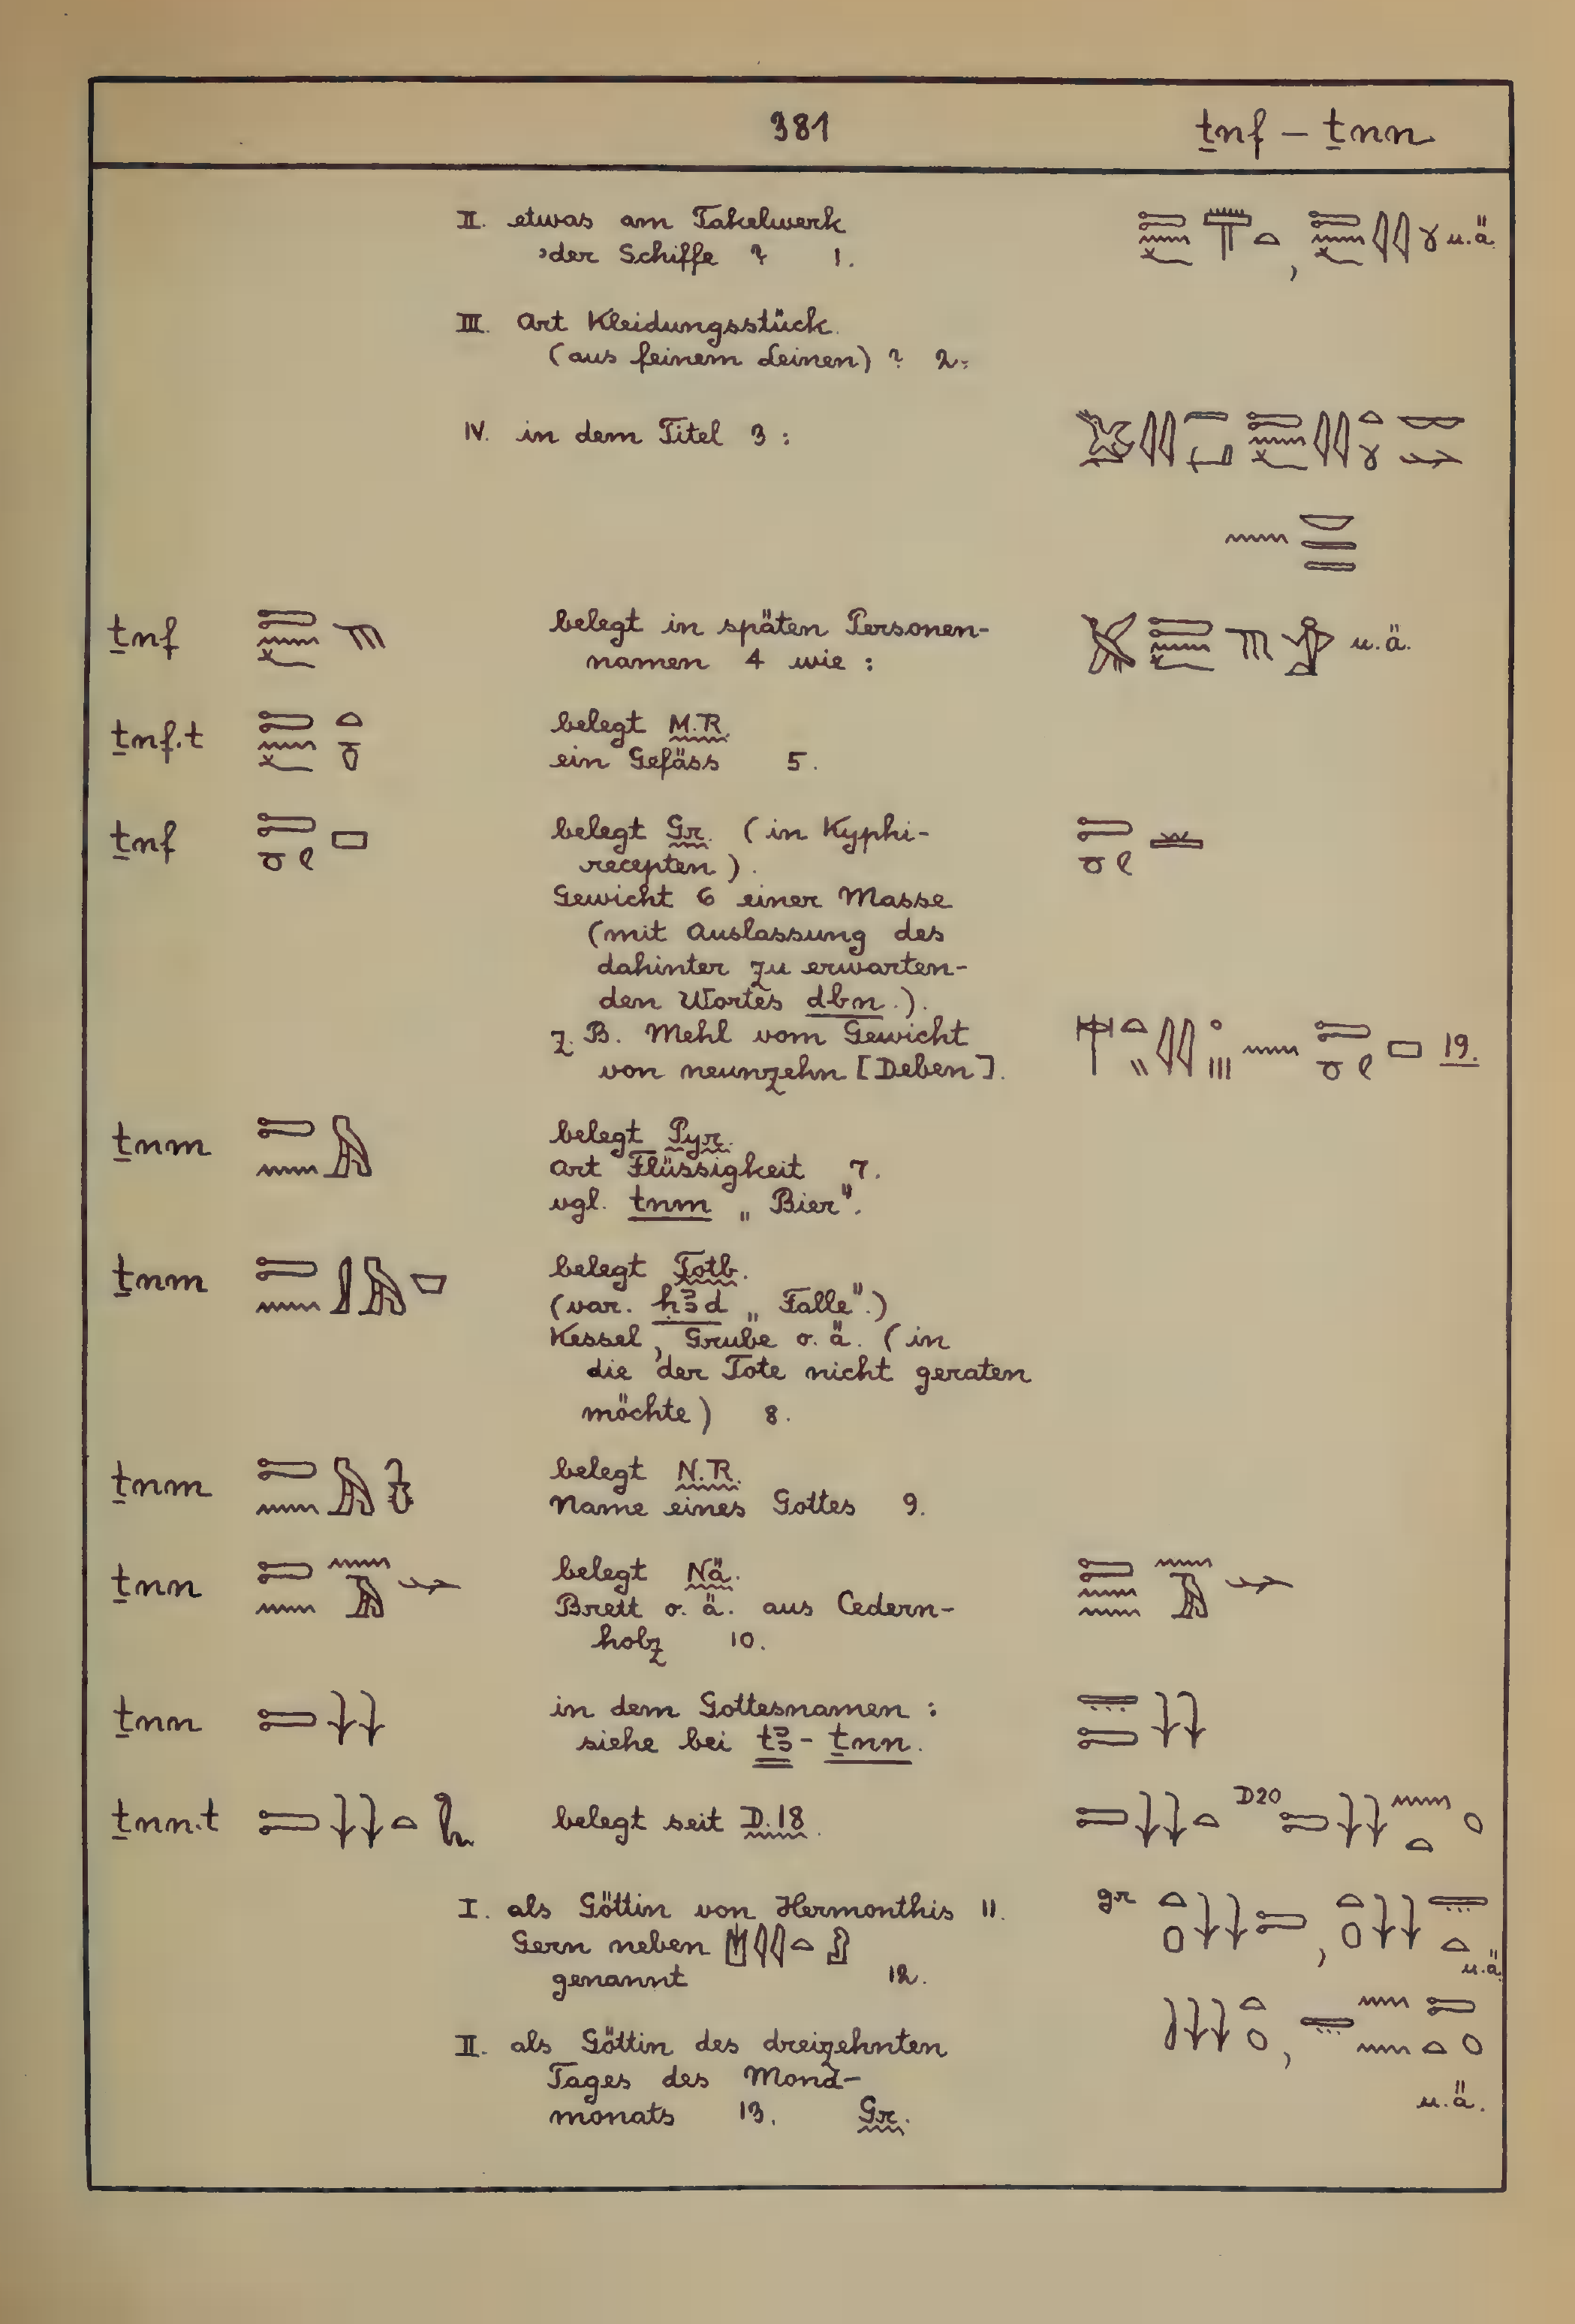 381 ṯnf – ṯnn
II. etwas am Takelwerk
der Schiffe ? 1. , u.ä.
III. Art Kleidungsstück.
(aus feinem Leinen) ? 2.
IV. in dem Titel 3 :
ṯnf belegt in späten Personen-
namen 4 wie : u.ä.
ṯnf.t belegt M.R.
ein Gefäss 5.
ṯnf belegt Gr. (in Kyphi-
recepten).
Gewicht 6 einer Masse
(mit Auslassung des
dahinter zu erwarten-
den Wortes dbn.).
z. B. Mehl vom Gewicht
von neunzehn [Deben]. 19.
ṯnm belegt Pyr.
Art Flüssigkeit 7.
vgl. tnm „Bier".
ṯnm belegt Totb.
(var. ḥꜣd „Falle".)
Kessel, Grube o. ä. (in
die der Tote nicht geraten
möchte) 8.
ṯnm belegt N.R.
Name eines Gottes 9.
ṯnn belegt Nä.
Brett o. ä. aus Cedern-
holz 10.
ṯnn in dem Gottesnamen :
siehe bei tꜣ-ṯnn.
ṯnn.t belegt seit D.18. D20
I. als Göttin von Hermonthis 11. gr ,
Gern neben
genannt 12. u.ä.
II. als Göttin des dreizehnten ,
Tages des Mond-
monats 13. Gr. u.ä.